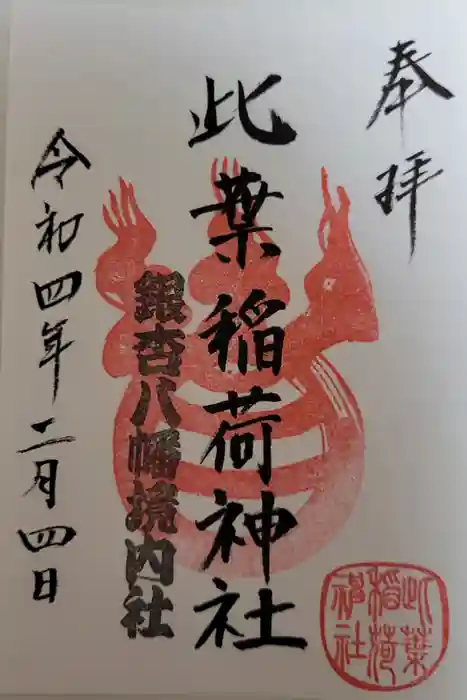 奉拝
此葉稲荷神社
銀杏八幡境内社
令和四年二月四日
此葉
稲荷
神社